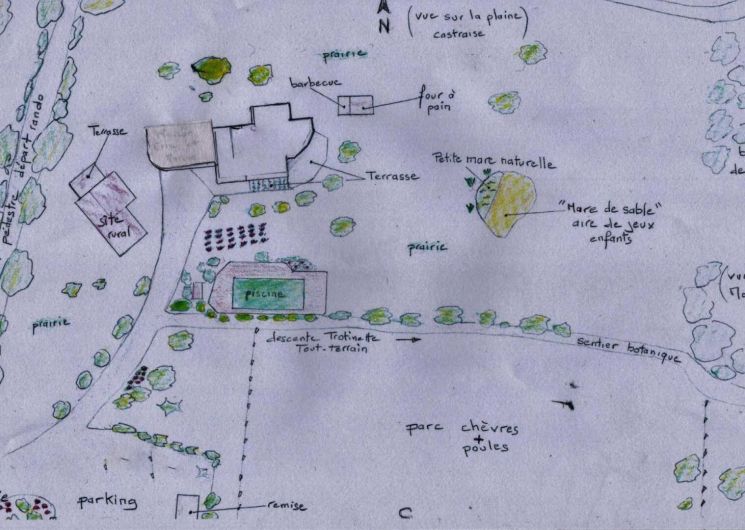 AN
(vue sur la plaine
castraise)
prairie
barbecue
four à
pain
Terrasse
pédestre départ rando
Maison
Gîte
rural
Terrasse
Petite mare naturelle
"Mare de sable"
aire de jeux
enfants
prairie
(vu
piscine
prairie
descente Trotinette
Tout-terrain
sentier botanique
parc chèvres
+
poules
parking
remise
C